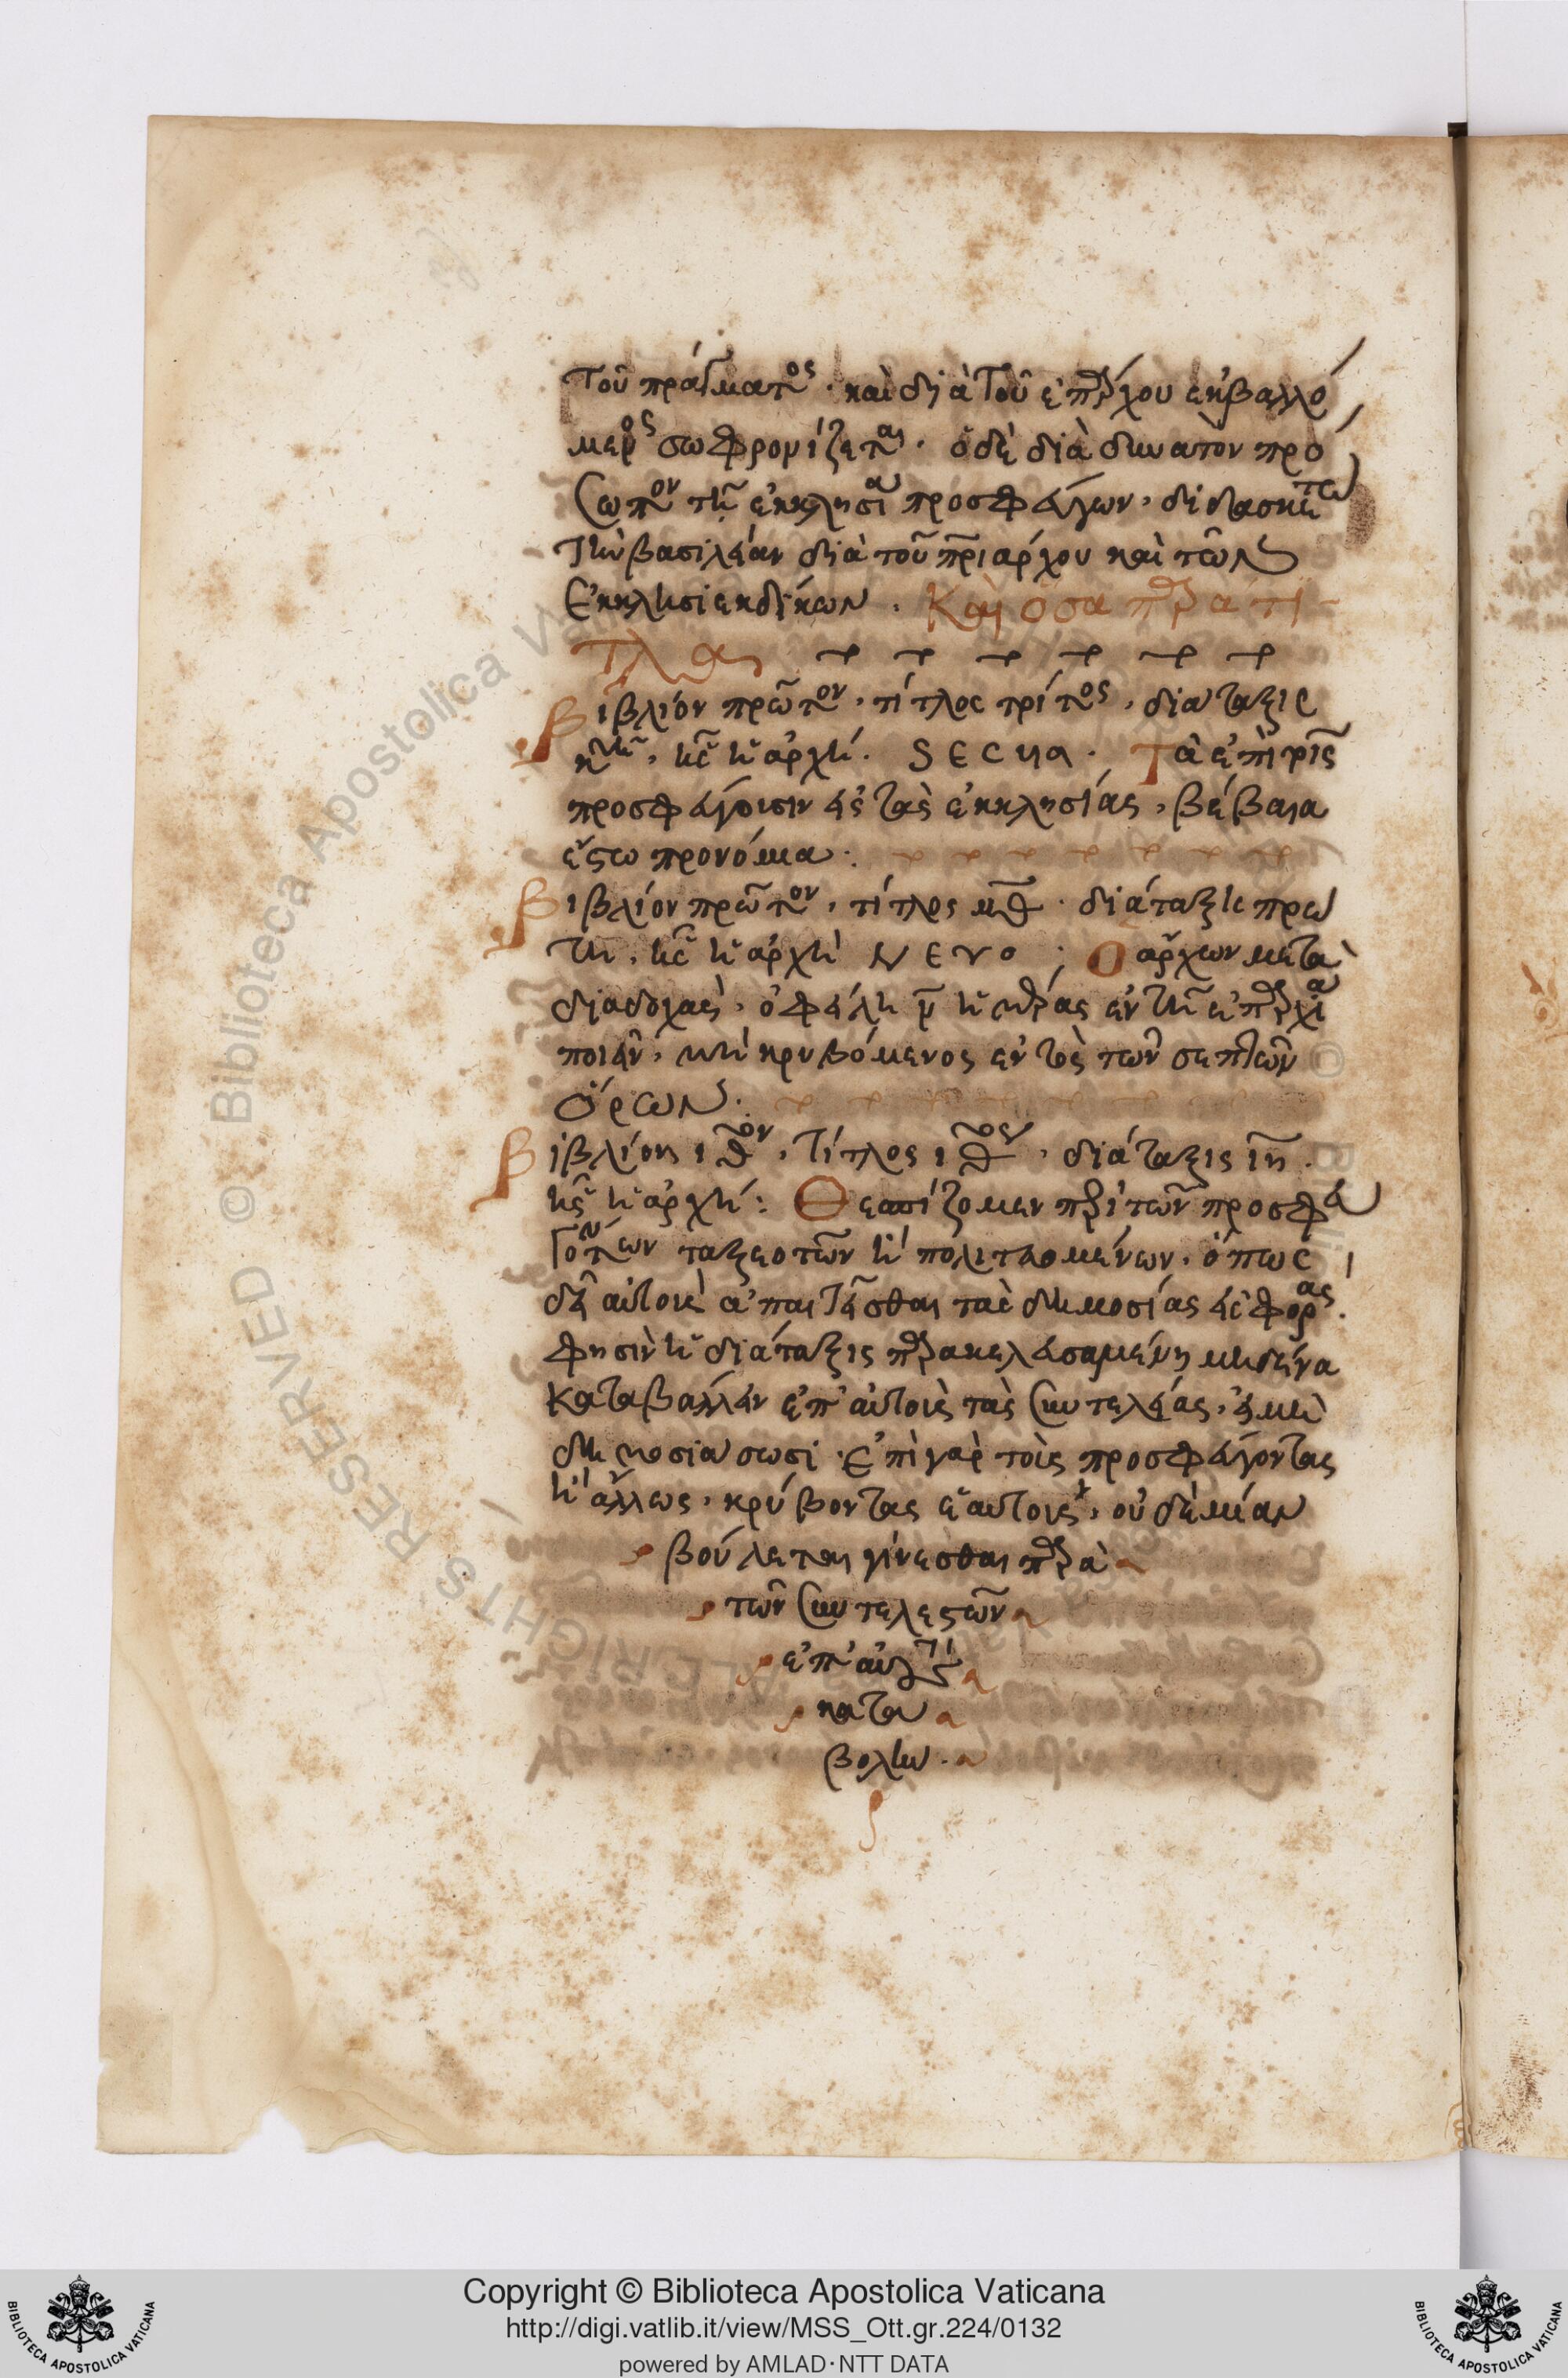 τοῦ πράγματος · καὶ διὰ τοῦ ἐπάρχου ἐκβαλλό
μενος σωφρονίζεται · ὁ δὲ διὰ δυνατὸν πρό
σωπον τῇ ἐκκλησίᾳ προσφεύγων ·
τὴν βασιλείαν διὰ τοῦ πριαρχου καὶ τῶν
ἐκκλησιεκδίκων · Καὶ ὅσα παρατι
τλα
Βιβλίον πρῶτον · τίτλος τρίτος · διάταξις
ἧς ἡ ἀρχή · SECUA · Τὰ ἐπὶ τοῖς
προσφεύγουσιν εἰς τὰς ἐκκλησίας · βέβαια
ἔστω προνόμια ·
Βιβλίον πρῶτον · τίτλος μθ · διάταξις πρώ
τη · ἧς ἡ ἀρχὴ NEVO · Ὁ ἄρχων μετὰ
διαδοχὴν · ὀφείλει ν ἡμέρας ἐν τῇ ἐπαρχίᾳ
ποιεῖν · μὴ κρυβόμενος ἐντὸς τῶν σεπτῶν
ὅρων ·
Βιβλίον · τίτλος · διάταξις ιη ·
ἧς ἡ ἀρχή : Θεσπίζομεν περὶ τῶν προσφευ
γόντων ταξεοτῶν ἢ πολιτευομένων · ὅπως
δεῖ αὐτοὺς ἀπαιτεῖσθαι τὰς δημοσίας εἰσφοράς ·
φησὶν ἡ διάταξις παρακελευσαμένη μηδένα
καταβαλλεῖν ἐπ' αὐτοῖς τὰς συντελείας · εἰ μὴ
δημοσιάσωσι · Ἐπὶ γὰρ τοῖς προσφεύγοντας
ἢ ἄλλως · κρύβοντας ἑαυτοὺς · οὐδεμίαν
βούλεται γίνεσθαι παρὰ
τῶν συντελεστῶν
ἐπ' αὐτοῖς
κατα
βολήν ·
Copyright © Biblioteca Apostolica Vaticana
http://digi.vatlib.it/view/MSS_Ott.gr.224/0132
powered by AMLAD·NTT DATA